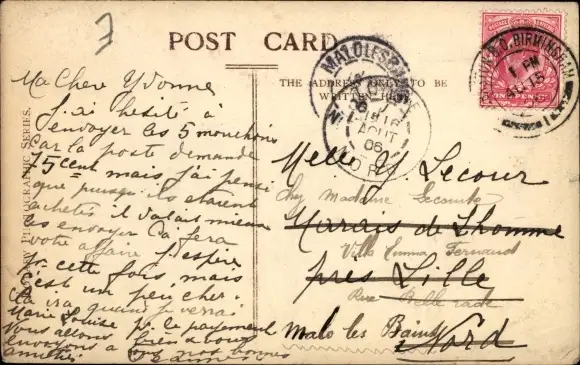 POST CARD.
THE ADDRESS ONLY TO BE
WRITTEN HERE
PHOTOGRAPHIC SERIES.
Ma Chere Yvonne
J'ai hésité à
envoyer les 5 mouchoirs
car la poste demande
75 cent mais j'ai pensé
que puisqu'ils étaient
achetés il valait mieux
les envoyer ça fera
votre affaire j'espère
pr cette fois, mais
c'est un peu cher.
Ça ira quand je verrai
Marie Louise pr le payement
Vous allons bien & vous
envoyons à tous nos bonnes
amitiés
Melle Y Lecour
Chez Madame Lecomte
Marais de Lhomme
Villa Emma Fernand
près Lille
Rue Belle rade
Malo les Bains
Nord
MALO LES BAINS
16
AOUT
06
NORD
BIRMINGHAM
1 PM
AU 15